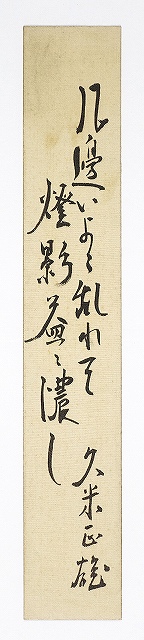 几邊いよゝ乱れて
燈影益ゝ濃し
久米正雄